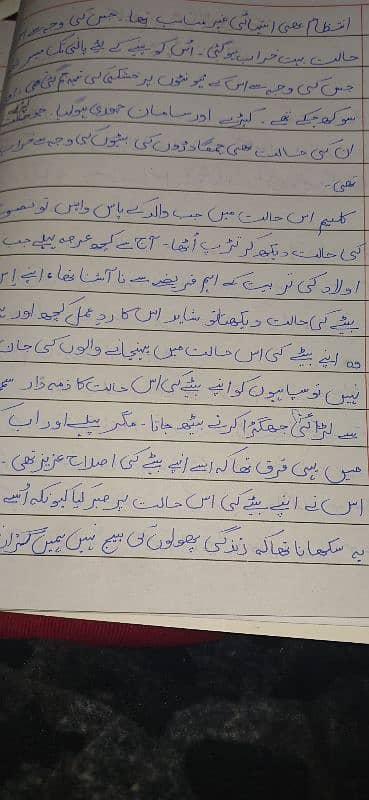 انتظام بھی انتہائی غیر مناسب تھا۔ جس کی وجہ سے
حالت بہت خراب ہوگئی۔ اُس کو پینے کے لئے پانی تک میسر
جس کی وجہ سے اس کے ہونٹوں پر خشکی کی تہہ جم گئی تھی۔
سوکھ چکے تھے۔ کپڑے اور سامان چوری ہوگیا۔
ان کی حالت بھی چمگادڑوں کی بیٹوں کی وجہ سے خراب
تھی۔
کلیم اس حالت میں جب والد کے پاس واپس تو نصوح
کی حالت دیکھ کر تڑپ اُٹھا۔ آج سے کچھ عرصہ پہلے جب
اولاد کی تربیت کے اہم فریضے سے نا آشنا تھا، اپنے اس
بیٹے کی حالت دیکھتا تو شاید اس کا ردِ عمل کچھ اور
وہ اپنے بیٹے کی اس حالت میں پہنچانے والوں کی جان
نہیں تو سپاہیوں کو اپنے بیٹے کی اس حالت کا ذمہ دار
سے لڑائی جھگڑا کرنے بیٹھ جاتا۔ مگر پہلے اور اب
میں یہی فرق تھا کہ اسے اپنے بیٹے کی اصلاح عزیز تھی۔
اس نے اپنے بیٹے کی اس حالت پر صبر کیا کیونکہ اُسے
یہ سکھانا تھا کہ زندگی پھولوں کی سیج نہیں ہمیں